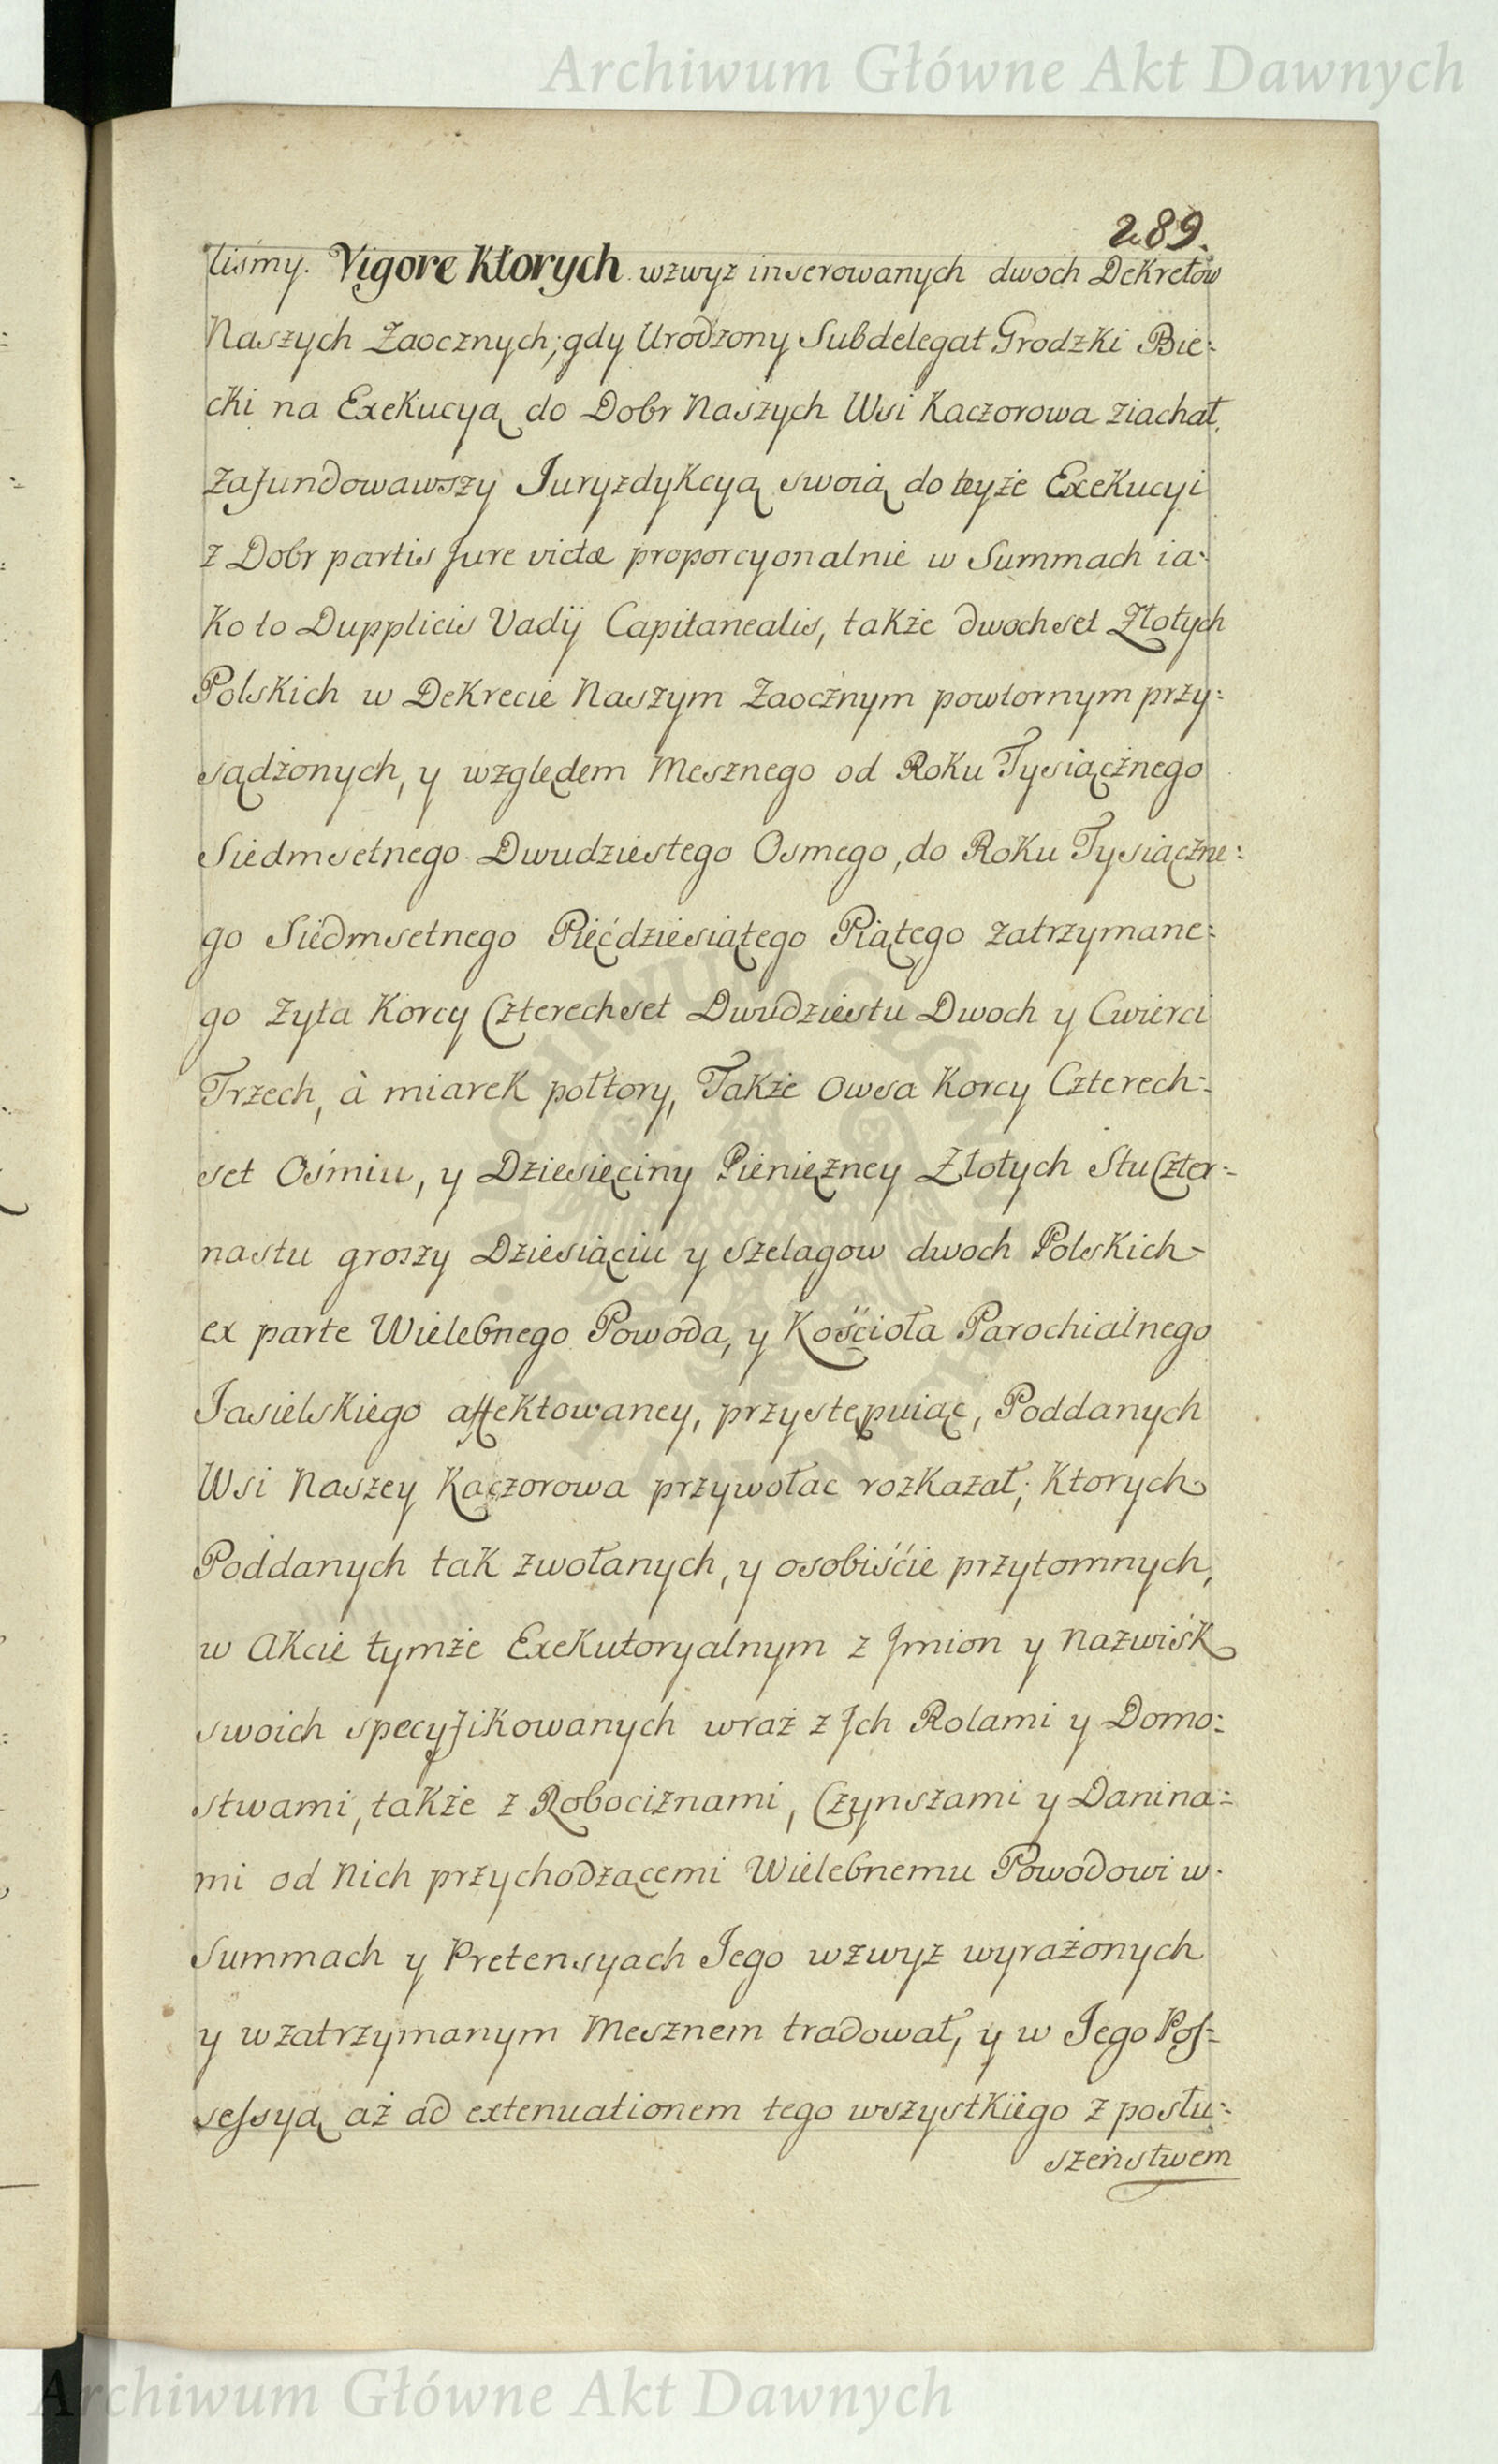 Archiwum Główne Akt Dawnych
289.
liśmy. Vigore Ktorych wzwyż inserowanych dwoch Dekretow
Naszych Zaocznych; gdy Urodzony Subdelegat Grodzki Bie:
cki na Exekucyą do Dobr Naszych Wsi Kaczorowa ziachał,
zafundowawszy Juryzdykcyą swoią do teyże Exekucyi
z Dobr partis Jure victæ proporcyonalnie w Summach ia:
ko to Dupplicis Vadij Capitanealis, także dwochset Złotych
Polskich w Dekrecie Naszym Zaocznym powtornym przy:
sądzonych, y względem Mesznego od Roku Tysiącznego
Siedmsetnego Dwudziestego Osmego, do Roku Tysiączne:
go Siedmsetnego Pięćdziesiątego Piątego zatrzymane:
go Zyta Korcy Czterechset Dwudziestu Dwoch y Cwierci
Trzech, à miarek połtory, Także Owsa Korcy Czterech:
set Ośmiu, y Dziesięciny Pieniężney Złotych Stu Czter:
nastu groszy Dziesiąciu y Szelagow dwoch Polskich
ex parte Wielebnego Powoda, y Kościoła Parochialnego
Jasielskiego affektowaney, przystępuiąc, Poddanych
Wsi Naszey Kaczorowa przywołac rozkazał; Ktorych
Poddanych tak zwołanych, y osobiście przytomnych,
w Akcie tymże Exekutoryalnym z Jmion y Nazwisk
swoich specyfikowanych wraz z Jch Rolami y Domo:
stwami, także z Robociznami, Czynszami y Danina:
mi od Nich przychodzącemi Wielebnemu Powodowi w
Summach y Pretensyach Jego wzwyż wyrażonych
y w zatrzymanym Mesznem tradował, y w Jego Pos:
sessyą aż ad extenuationem tego wszystkiego z posłu:
szeństwem
Archiwum Główne Akt Dawnych